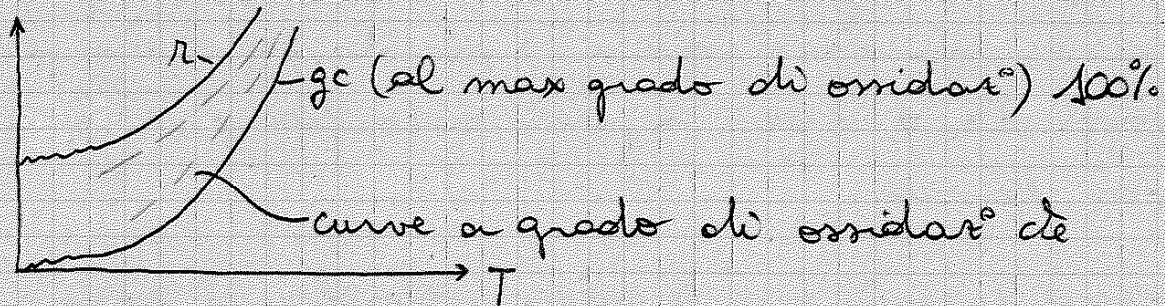 r
gc (al max grado di ossidaz°) 100%
curve a grado di ossidaz° cte
T